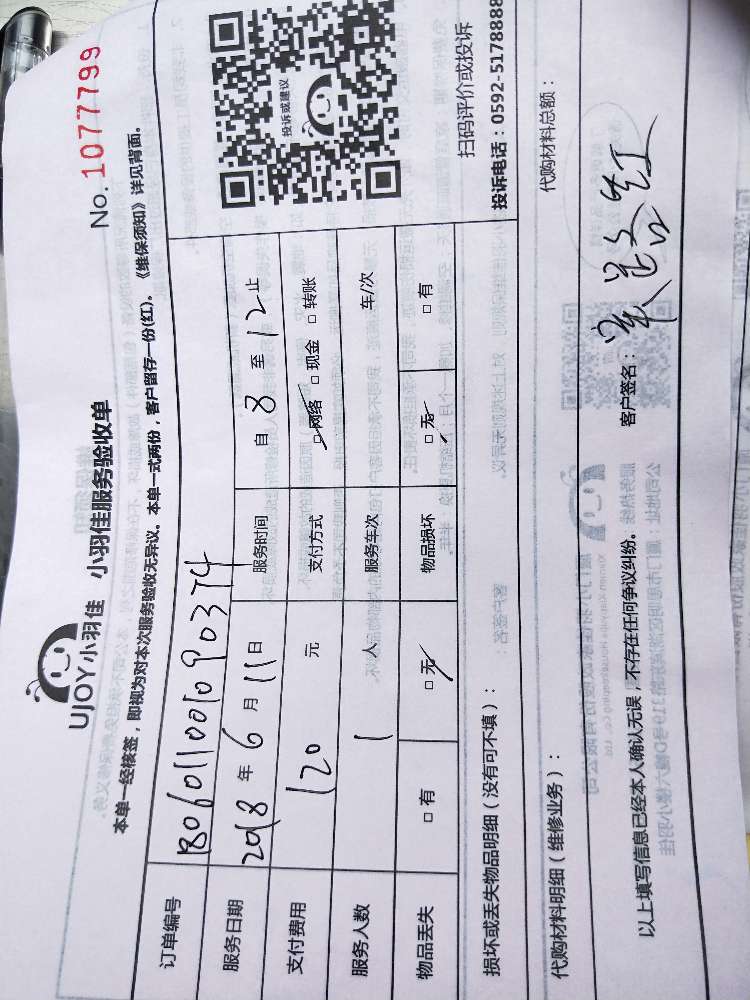 UJOY小羽佳 小羽佳服务验收单
No. 1077799
本单一经核签，即视为对本次服务验收无异议。本单一式两份，客户留存一份(红)。《维保须知》详见背面。
订单编号
服务日期 2018 年 6 月 11 日 服务时间 自 8 至 12 止
支付费用 120 元 支付方式 □网络 □现金 □转账
服务人数 1 人 服务车次 车/次
物品丢失 □有 □无 物品损坏 □无 □有
投诉或建议
扫码评价或投诉
投诉电话：0592-5178888
损坏或丢失物品明细（没有可不填）：
代购材料明细（维修业务）：
代购材料总额：
以上填写信息已经本人确认无误，不存在任何争议纠纷。
客户签名：